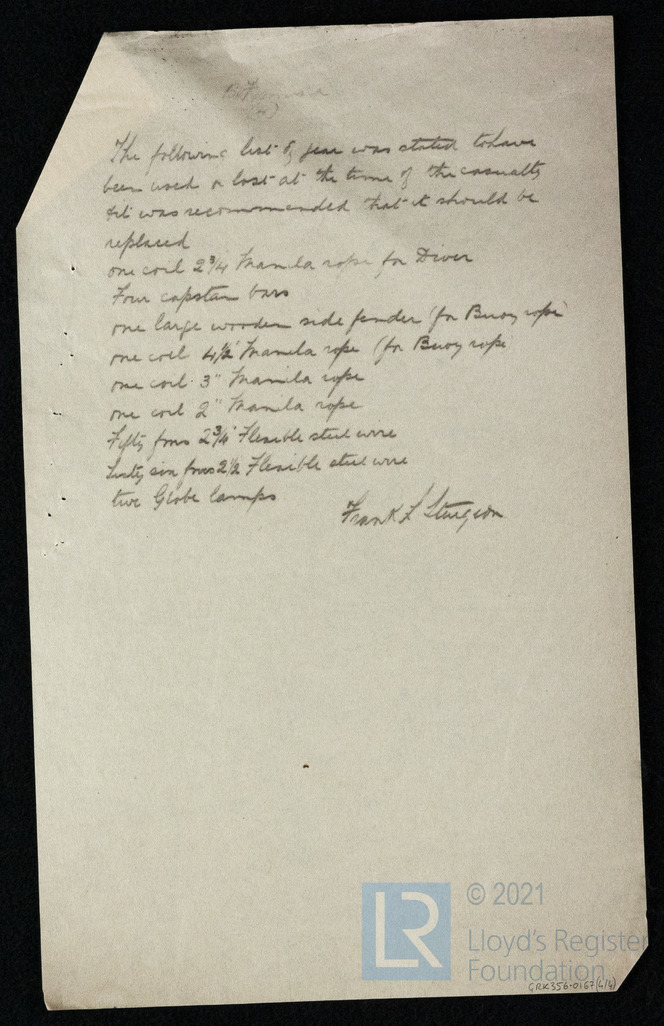 4)
The following list of gear was stated to have
been used or lost at the time of the casualty
& it was recommended that it should be
replaced
one coil 2¾ Manila rope for Diver
Four capstan bars
one large wooden side fender (for Buoy rope)
one coil 4½" Manila rope (for Buoy rope
one coil 3" Manila rope
one coil 2" Manila rope
Fifty fms 2¾" Flexible steel wire
Sixty six fms 2½ Flexible steel wire
two Globe lamps
Frank L Sturgeon
LR
© 2021
Lloyd's Register
Foundation
GRK356-0167(4/4)